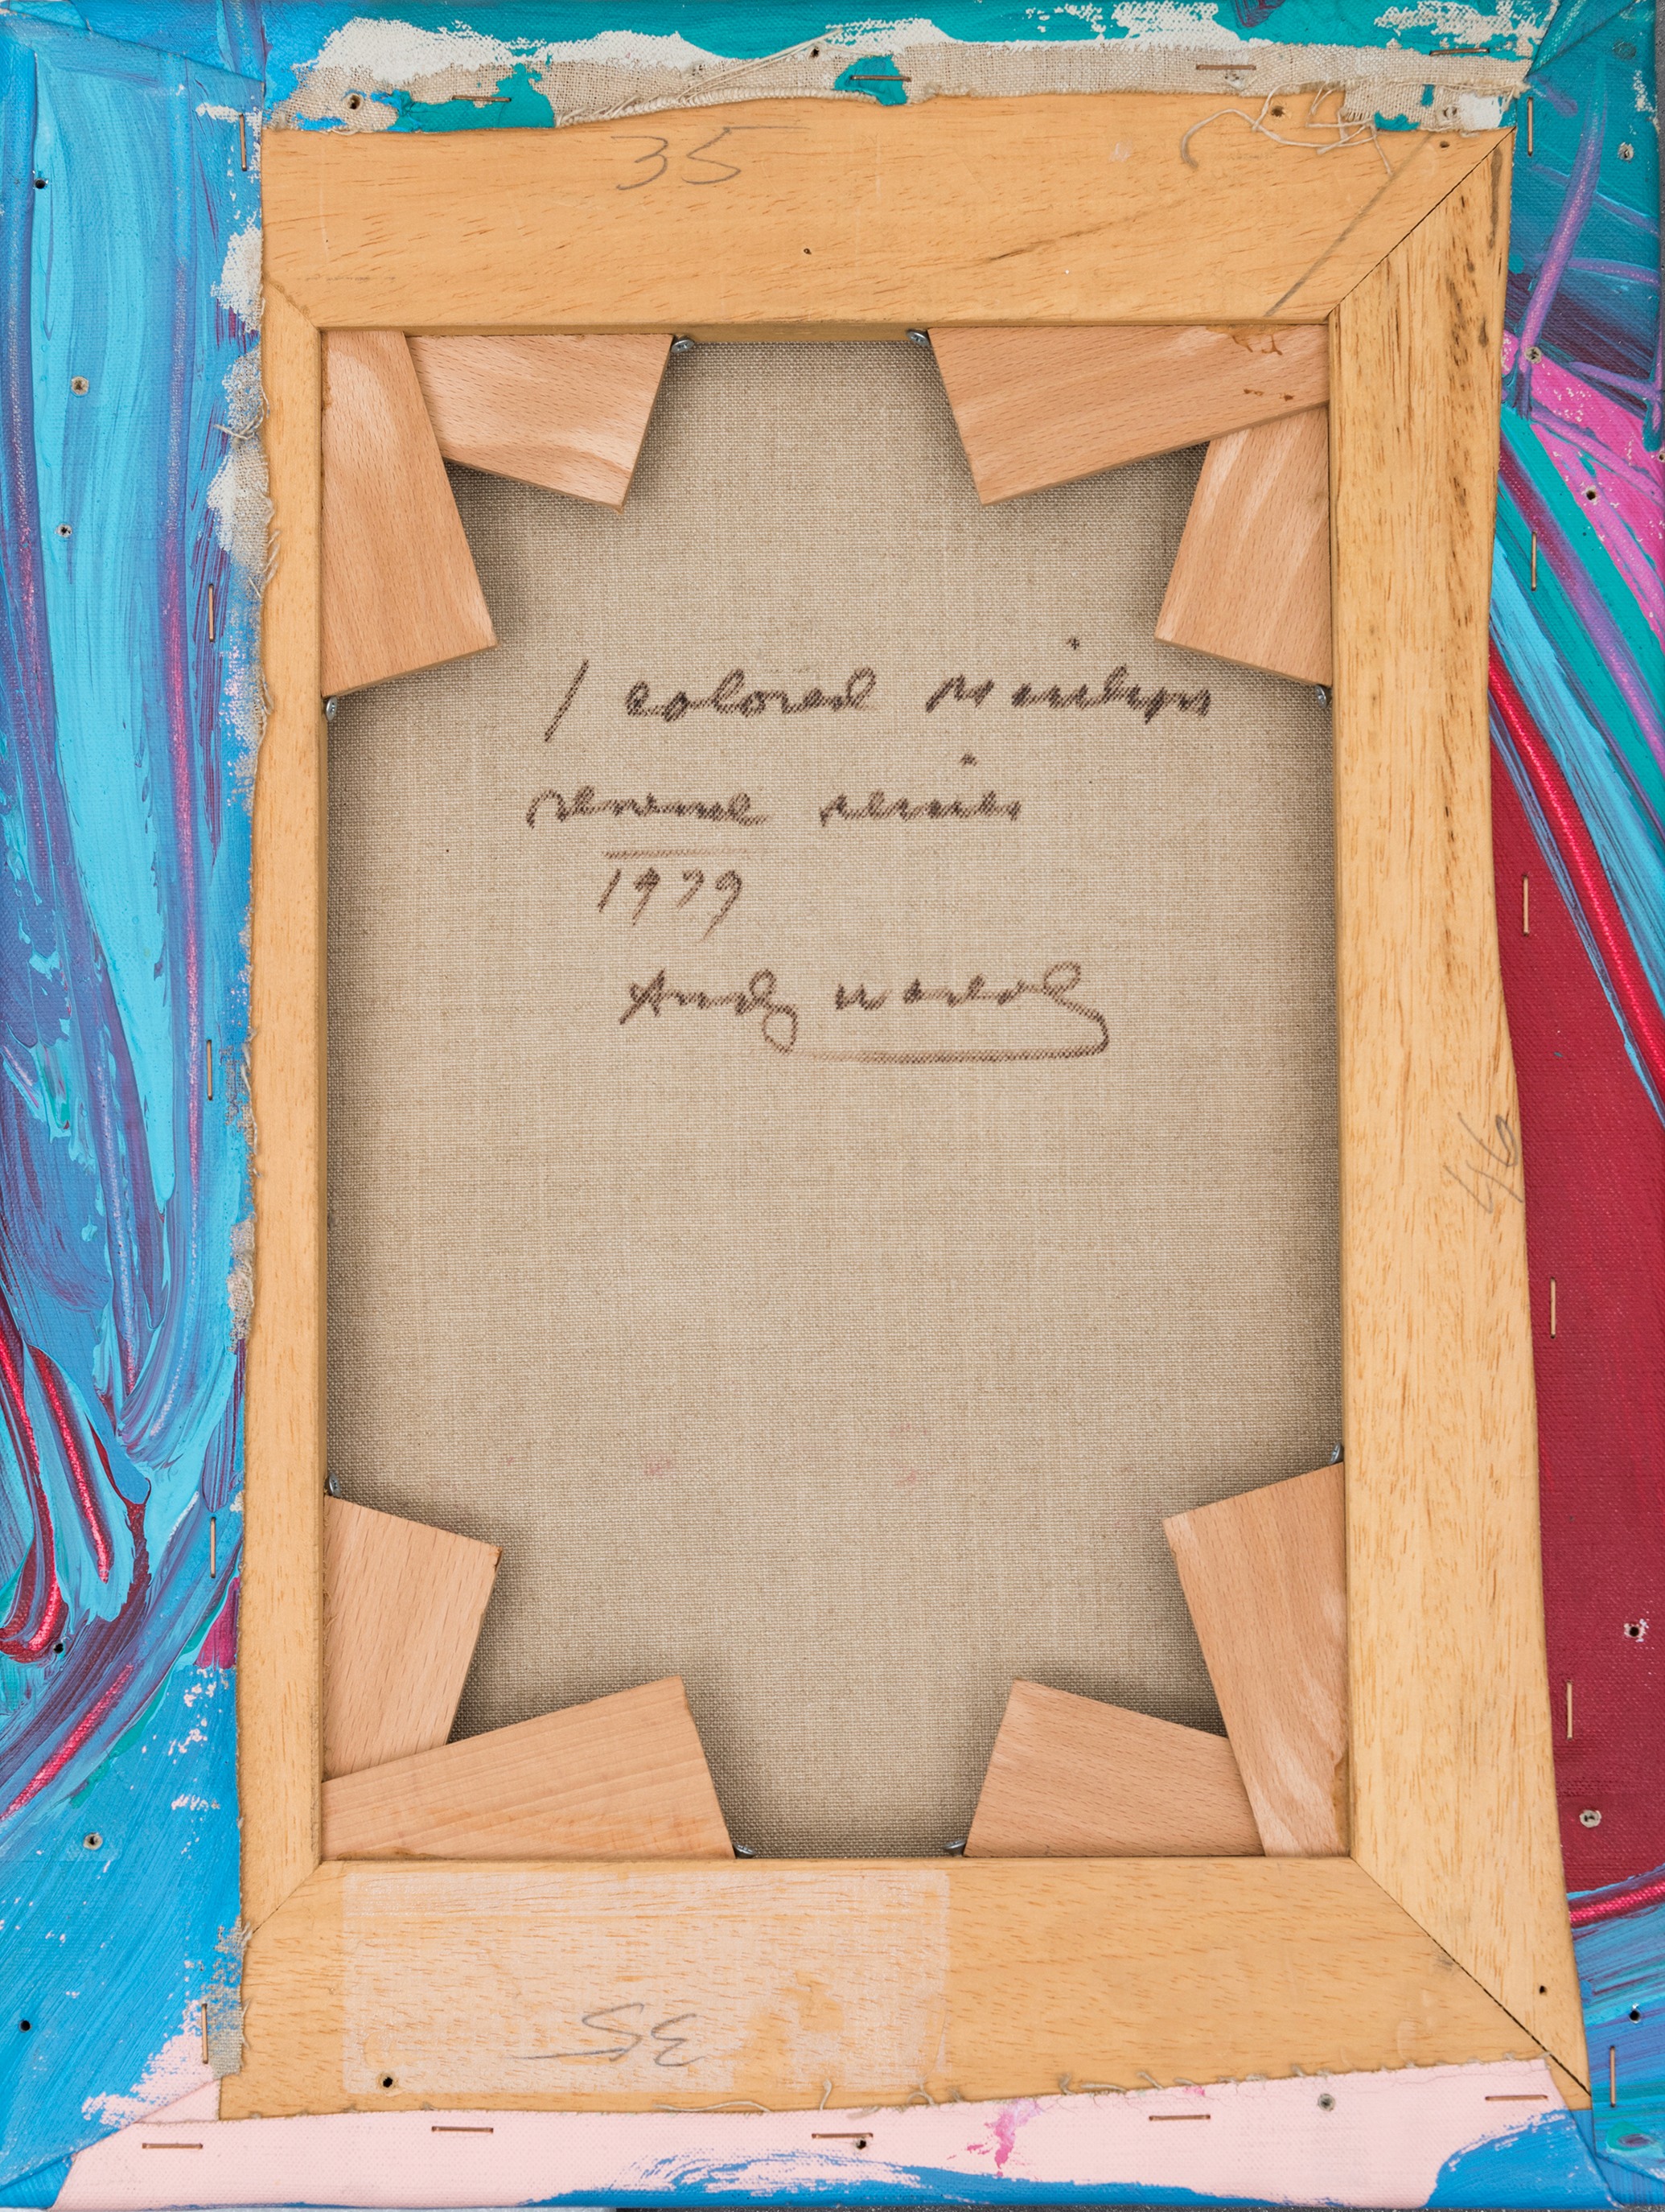 35
1 colored marilyn
reverse series
1979
Andy Warhol
46
35